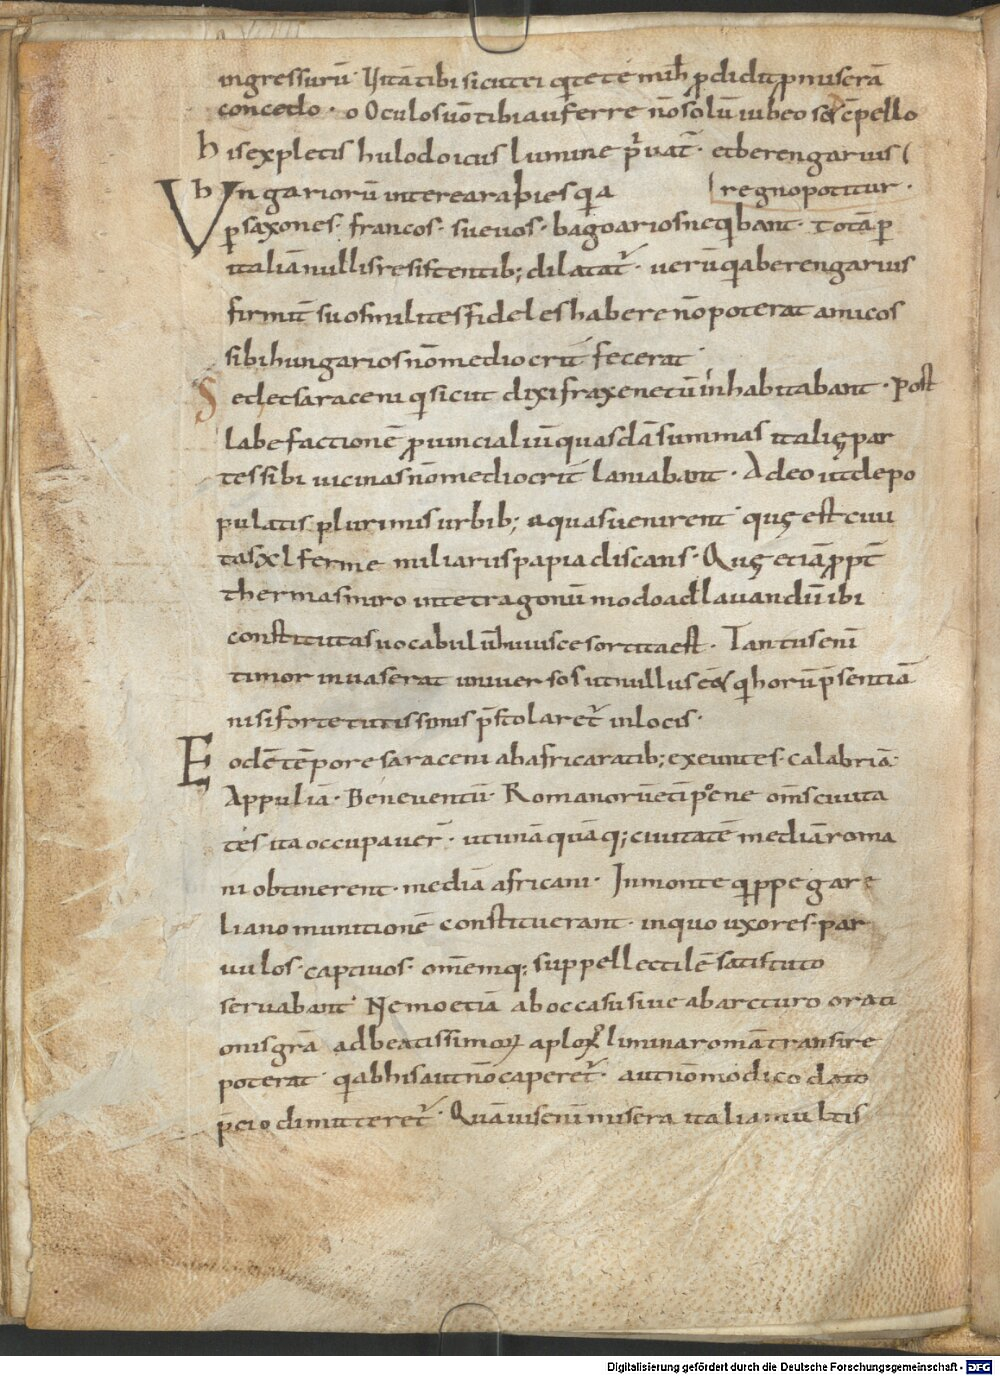 ingressurū. Vitā tibi sicut ei q̇ te te mih ꝓdidit ꝓmiserā
concedo. oOculos ūo tibi auferre nō solū iubeo s& c̄pello
his expletis hulodoicus lumine p̄uat̄. et berengarius
regno potitur.
Vhngariorū interea rabies q̇a
ꝑ saxones. francos. suevos. bagoarios neq̇bant. totā ꝑ
italiā nullis resistentib; dilatat̄. verū q̇a berengarius
firmit̄ suos milites fideles habere nō poterat amicos
sibi hungarios nō mediocrit̄ fecerat.
Sed et saraceni q̇ sicut dixi fraxenetū inhabitabant. Post
labefactionē ꝓuincialiū quasdā summas italię par
tes sibi uicinas nō mediocrit̄ laniabant. Adeo ut depo
pulatis plurimis urbib; aquas uenirent quę est ciui
tas xl ferme miliariis papia distans. Quę etiā ꝓpt̄
thermas miro in tetragonū modo ad lauandū ibi
constitutas uocabulū huiusce sortita est. Tantus eni
timor inuaserat uniuersos ut nullus eēt q̇ horū p̄sentiā
nisi forte tutissimis p̄stolaret̄ in locis.
Eodē tēpore saraceni ab africa ratib; exeuntes. calabriā.
Appuliā. Beneventū. Romanorū etiā pene om̄s ciuita
tes ita occupauer̄. ut unā quāq; ciuitatē mediā roma
ni obtinerent. mediā africani. In monte q̇ppe gare
liano munitionē constituerant. in quo uxores. par
uulos. captiuos. om̄emq; suppellectilē satis tuto
servabant. Nemo etiā ab occasu siue ab arcturo orati
onis grā ad beatissimoꝝ aploꝝ limina romā transire
poterat. q̇ ab his aut nō caperet̄. aut nō modico dato
p̄cio dimitteret̄. Quāuis eni misera italia multis